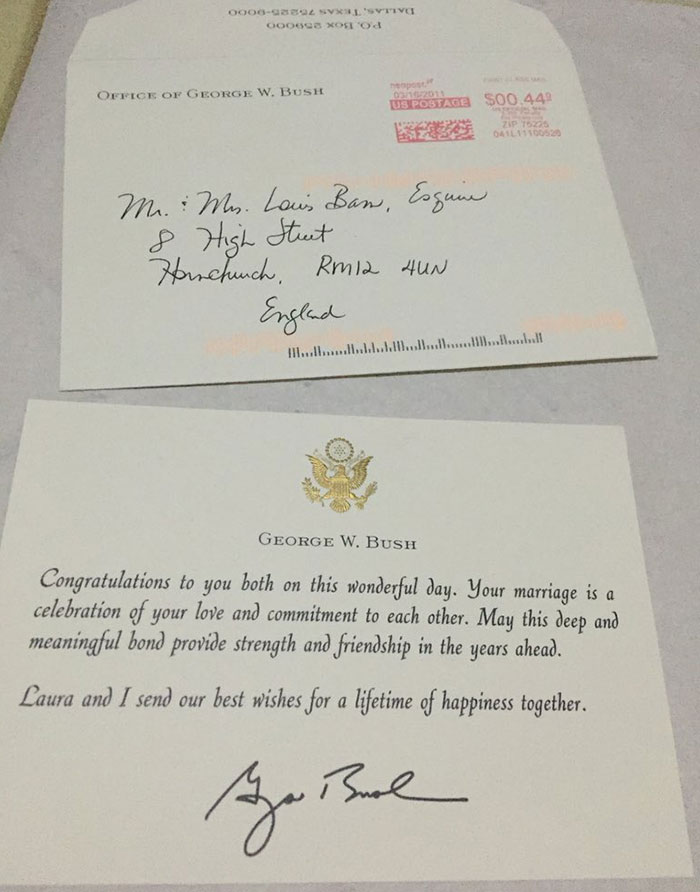 P.O. Box 259000
Dallas, Texas 75225-9000
Office of George W. Bush
neopost
03/16/2011
US POSTAGE
FIRST-CLASS MAIL
$00.44⁰
ZIP 75225
041L11100526
Mr. & Mrs. Louis Bass, Esquire
8 High Street
Hornchurch, RM12 4UN
England
George W. Bush
Congratulations to you both on this wonderful day. Your marriage is a
celebration of your love and commitment to each other. May this deep and
meaningful bond provide strength and friendship in the years ahead.
Laura and I send our best wishes for a lifetime of happiness together.